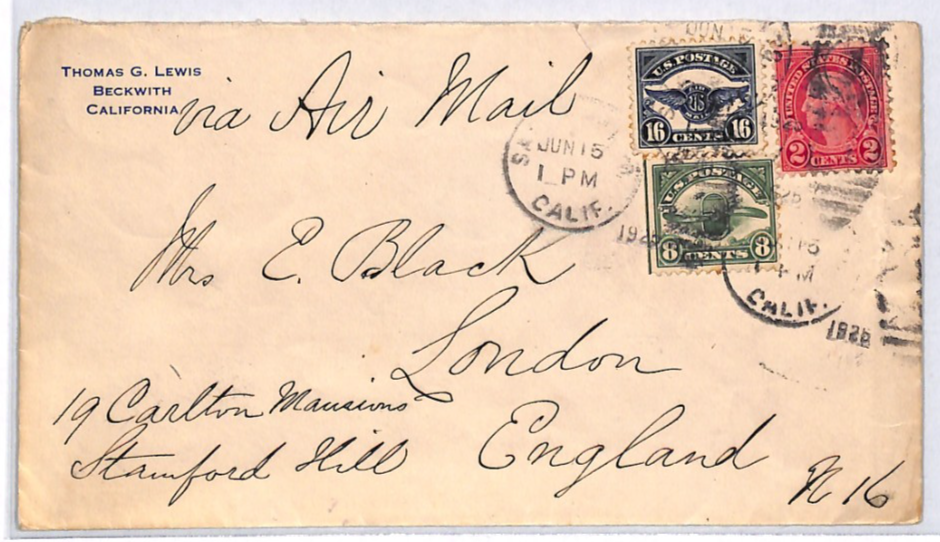 THOMAS G. LEWIS
BECKWITH
CALIFORNIA
via Air Mail
U.S. POSTAGE
16 CENTS 16
2 CENTS 2
U.S. POSTAGE
8 CENTS 8
JUN 15
1 PM
CALIF.
CALIF.
Mrs E. Black
London
19 Carlton Mansions
Stamford Hill
England
N 16